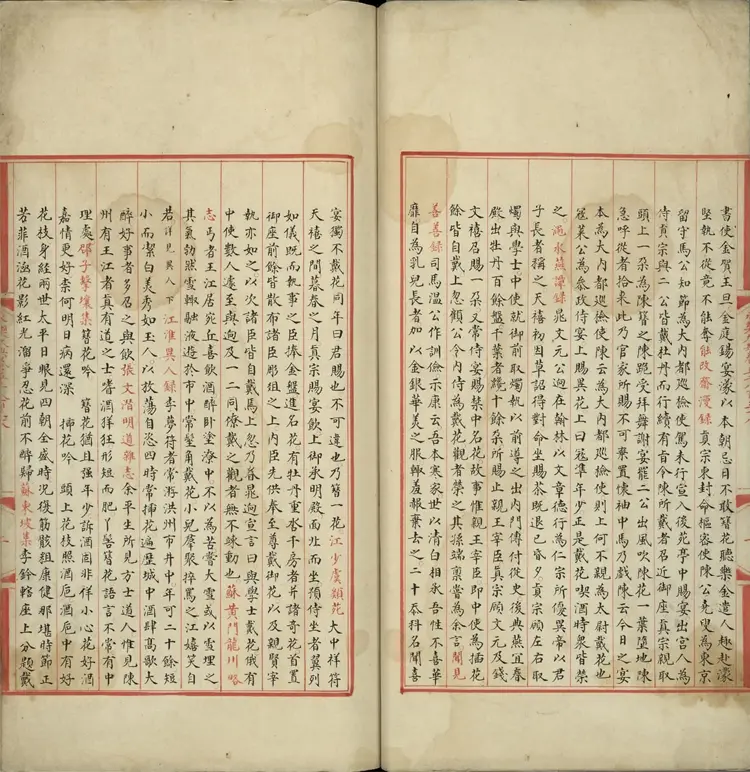 書使金賀王旦金庭錫宴漾以本朝忌日不敢簪花聽樂金遣人趣赴漾
堅執不從竟不能奪能改齋漫錄真宗東封命樞密使陳公堯叟為東京
留守馬公知節為大內都巡檢使駕未行宣入後苑亭中賜宴出宮人為
侍真宗與二公皆戴牡丹而行續有旨令陳所戴者召近御座真宗親取
頭上一朵為陳簪之陳跪受拜舞謝宴罷二公出風吹陳花一葉墮地陳
急呼從者拾來此乃官家所賜不可棄置懷袖中馬乃戲陳云今日之宴
本為大內都巡檢使陳云為大內都巡檢使則上何不親為太尉戴花也
寇萊公為參政侍宴上賜異花上曰寇準年少正是戴花喫酒時衆皆榮
之澠水燕譚錄晁文元公迥在翰林以文章德行為仁宗所優異帝以君
子長者稱之天禧初因草詔得對命坐賜茶既退已昏夕真宗顧左右取
燭與學士中使就御前取燭執以前導之出內門傳付從史後典燕宜春
殿出牡丹百餘盤千葉者纔十餘朵所賜止親王宰臣真宗顧文元及錢
文禧召賜一朵又常侍宴賜禁中名花故事惟親王宰臣即中使為插花
餘皆自戴上忽顧公令內侍為戴花觀者榮之其孫端稟嘗為余言聞見
善善錄司馬溫公作訓儉示康云吾本寒家世以清白相承吾性不喜華
靡自為乳兒長者加以金銀華美之服輒羞赧棄去之二十忝科名聞喜
宴獨不戴花同年曰君賜也不可違也乃簪一花江少虞類苑大中祥符
天禧之間暮春之月真宗賜宴飲上御承明殿面北而坐預侍坐者翼列
如儀既而執事之臣捧金盤進名花有牡丹重沓千房者并諸奇花首置
御座前餘皆散布諸臣彫俎之上內臣先供奉至尊戴御花以及親賢宰
執亦如之以次諸臣皆自戴馬上忽乃眷晁迥宣言曰與學士戴花俄有
中使數人遽至與迥及一二同僚戴之觀者無不竦動也蘇黃門龍川略
志丐者王江居宛丘喜飲酒醉卧塗潦中不以為苦嘗大雪或以雪埋之
其氣勃然雪輒融液遊於市中常髽角戴花小兒羣聚捽罵之江嬉笑自
若詳見異人下江淮異人錄李夢符者常游洪州市井中年可二十餘短
小而潔白美秀如玉人以放蕩自恣四時常插花遍歷城中酒肆高歌大
醉好事者多召之與飲張文潛明道雜志余平生所見方士道人惟見陳
州有王江者真有道之士嗜酒佯狂形短而肥丫髻簪花語言不常有中
理處邵子擊壤集簪花吟 簪花猶且强年少訴酒固非佯小心花好酒
嘉情更好柰何明日病還深 插花吟 頭上花枝照酒巵酒巵中有好
花枝身經兩世太平日眼見四朝全盛時況復筋骸粗康健那堪時節正
若菲酒涵花影紅光溜爭忍花前不醉歸蘇東坡集李鈐轄座上分題戴